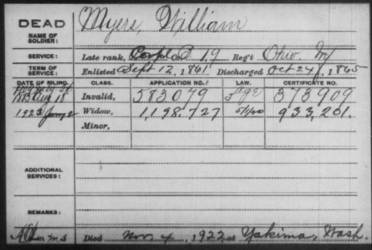 DEAD
NAME OF SOLDIER:
Myers, William
SERVICE:
Late rank, Corpl D 19 Reg't Ohio Inf
TERM OF SERVICE:
Enlisted Sept 12, 1861 Discharged Oct 24, 1865
DATE OF FILING. CLASS. APPLICATION NO. LAW. CERTIFICATE NO.
Aug 18 Invalid, 583079 373909
1923 Jany 2 Widow, 1198.727 933,201.
Minor,
ADDITIONAL SERVICES:
REMARKS:
Died Nov 4, 1922 at Yakima, Wash.